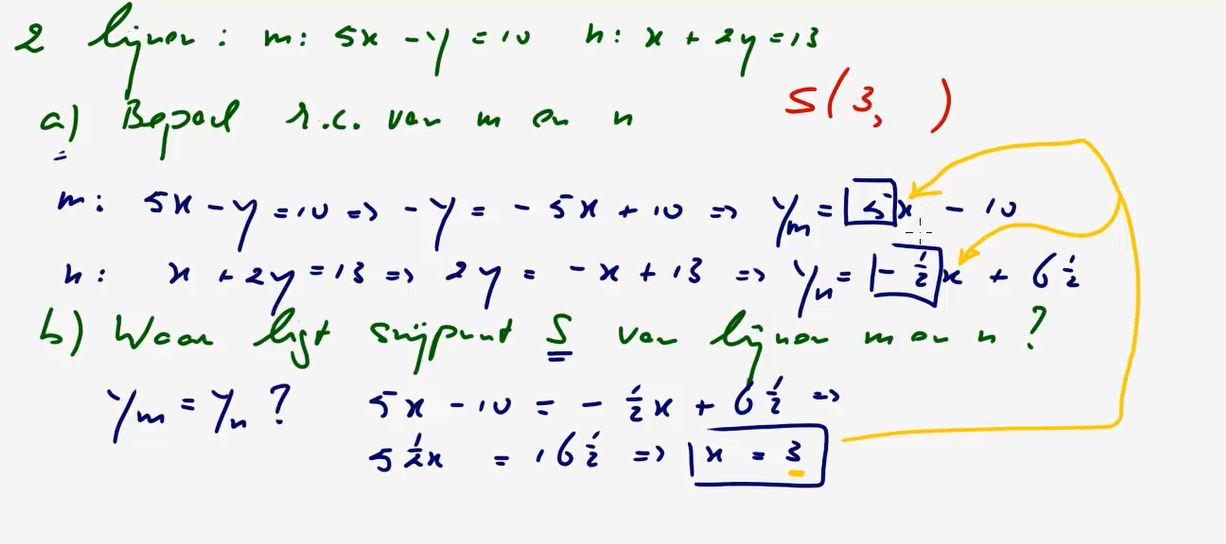 2 lijnen : m: 5x - y = 10 n: x + 2y = 13
S(3, )
a) Bepaal r.c. van m en n
m: 5x - y = 10 => -y = - 5x + 10 => yₘ = 5x - 10
n: x + 2y = 13 => 2y = -x + 13 => yₙ = -½x + 6½
b) Waar ligt snijpunt S van lijnen m en n ?
yₘ = yₙ ? 5x - 10 = - ½x + 6½ =>
5½x = 16½ => x = 3